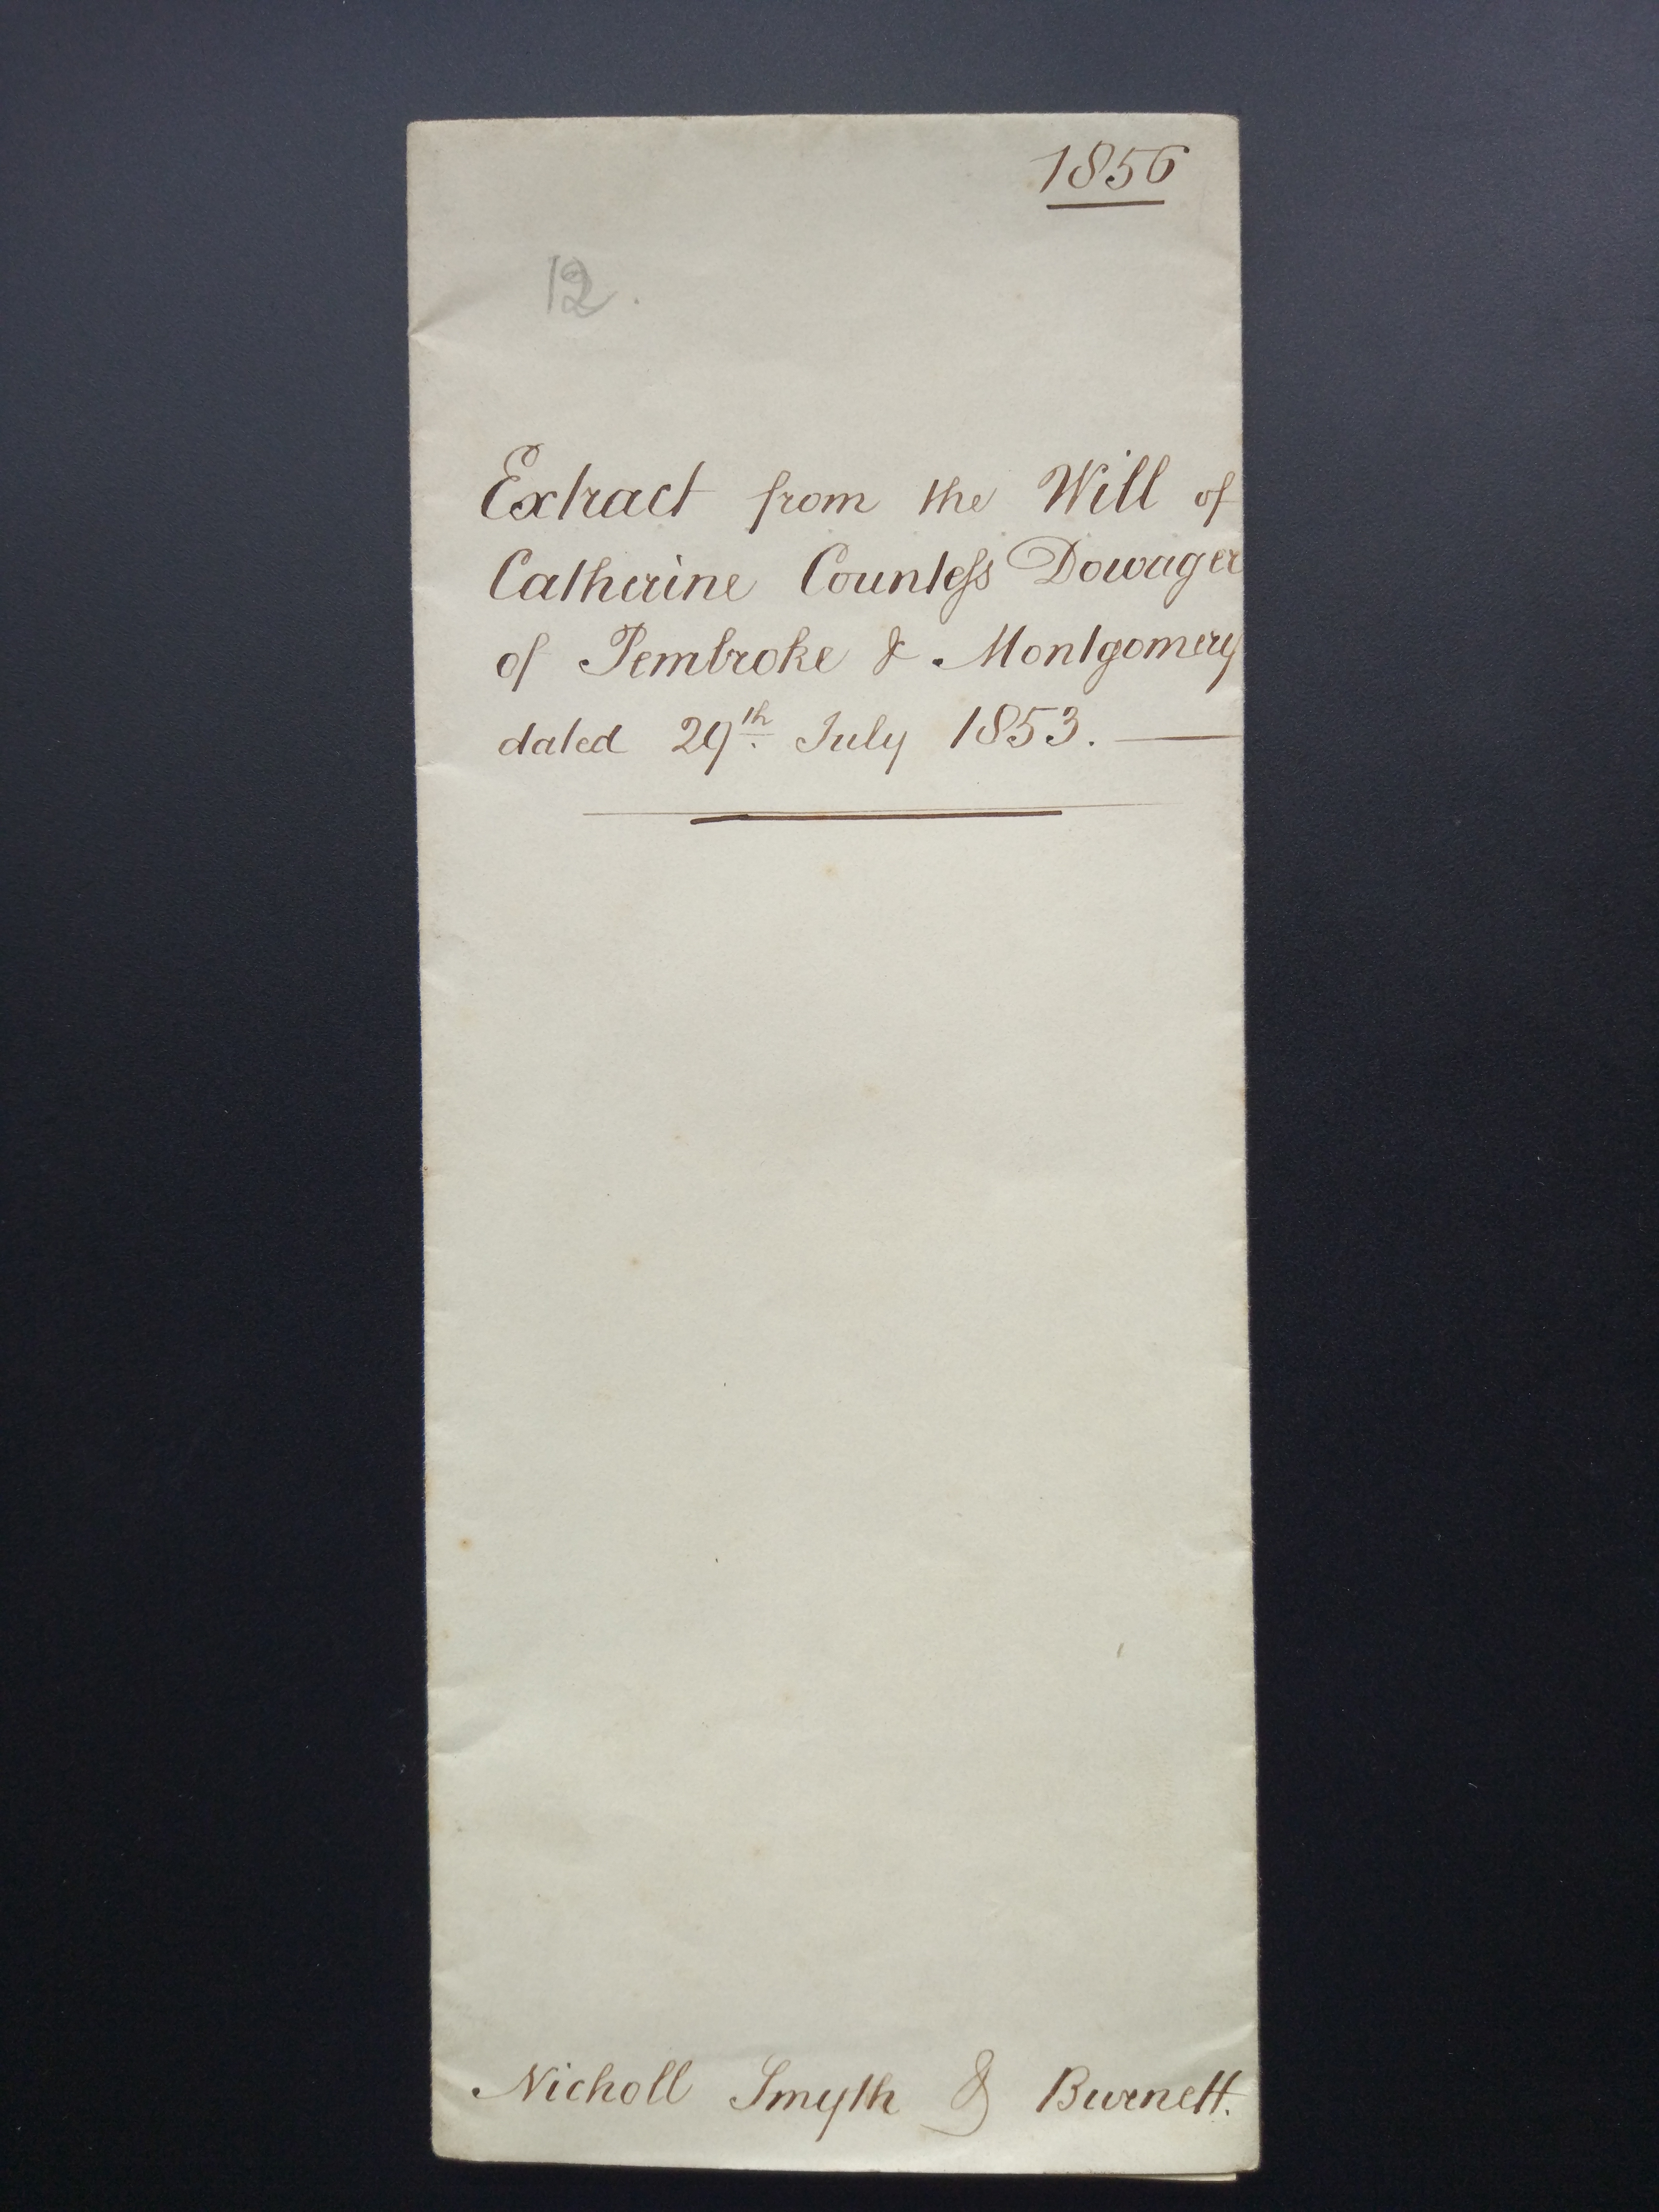 1856
12.
Extract from the Will of
Catherine Countess Dowager
of Pembroke & Montgomery
dated 29th July 1853. —
Nicholl Smyth & Burnett.